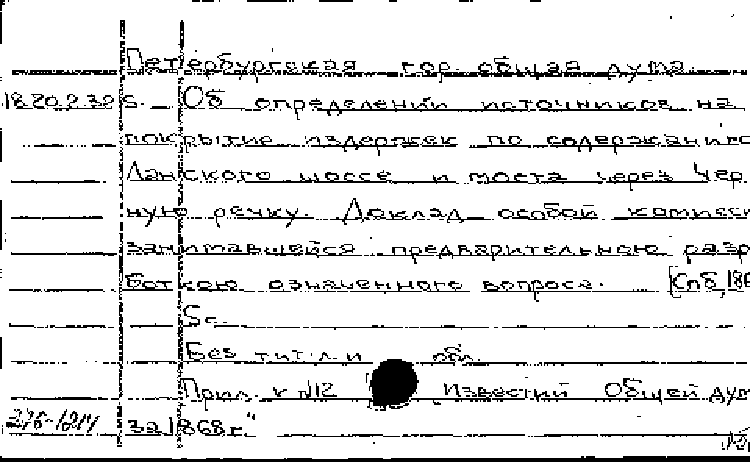 Петербургская гор. общая дума.
18.202.2.325. — Об определении источников на
покрытие издержек по содержанию
Ланского шоссе и моста через Чер
ную речку. Доклад особой комисс
занимавшейся предварительною разр
боткою означенного вопроса. [Спб, 186
5с.
Без тит. л. и обл.
Прил. к №12 "Известий Общей дум
за 1868 г."